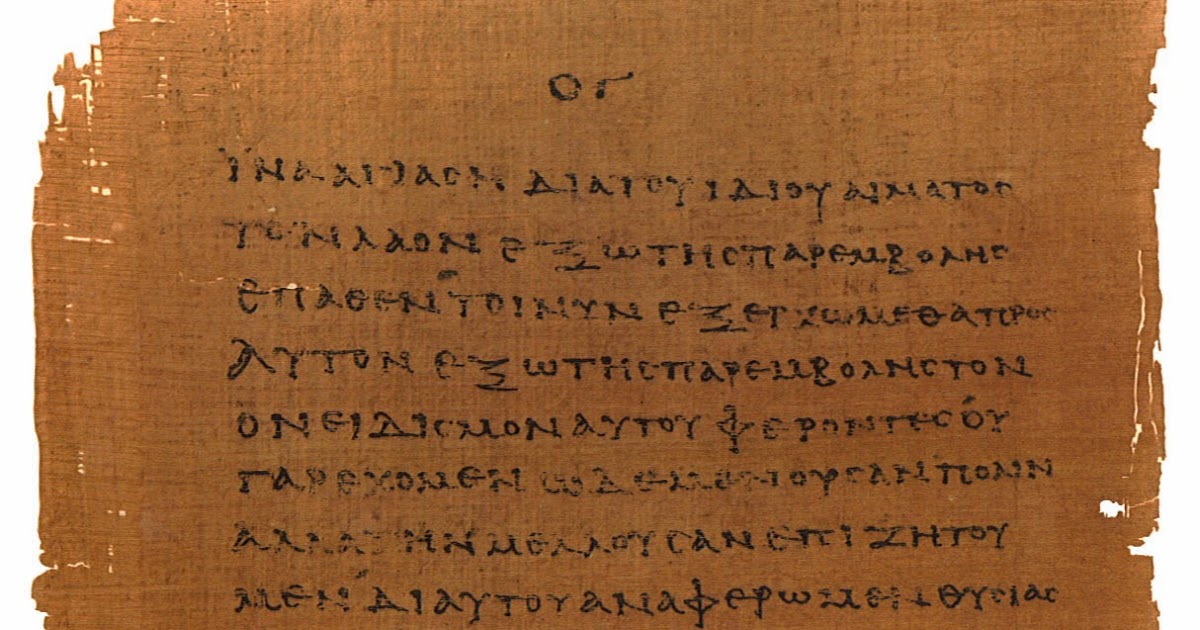 ΟΓ
ΪΝΑ ΑΓΙΑΣΗ ΔΙΑ ΤΟΥ ΙΔΙΟΥ ΑΙΜΑΤΟΣ
ΤΟΝ ΛΑΟΝ ΕΞΩ ΤΗϹ ΠΑΡΕΜΒΟΛΗϹ
ΕΠΑΘΕΝ ΤΟΙΝΥΝ ΕΞΕΡΧΩΜΕΘΑ ΠΡΟϹ
ΑΥΤΟΝ ΕΞΩ ΤΗϹ ΠΑΡΕΜΒΟΛΗϹ ΤΟΝ
ΟΝΕΙΔΙϹΜΟΝ ΑΥΤΟΥ ΦΕΡΟΝΤΕϹ ΟΥ
ΓΑΡ ΕΧΟΜΕΝ ΩΔΕ ΜΕΝΟΥϹΑΝ ΠΟΛΙΝ
ΑΛΛΑ ΤΗΝ ΜΕΛΛΟΥϹΑΝ ΕΠΙΖΗΤΟΥ
ΜΕΝ ΔΙ ΑΥΤΟΥ ΑΝΑΦΕΡΩΜΕΝ ΘΥϹΙΑϹ